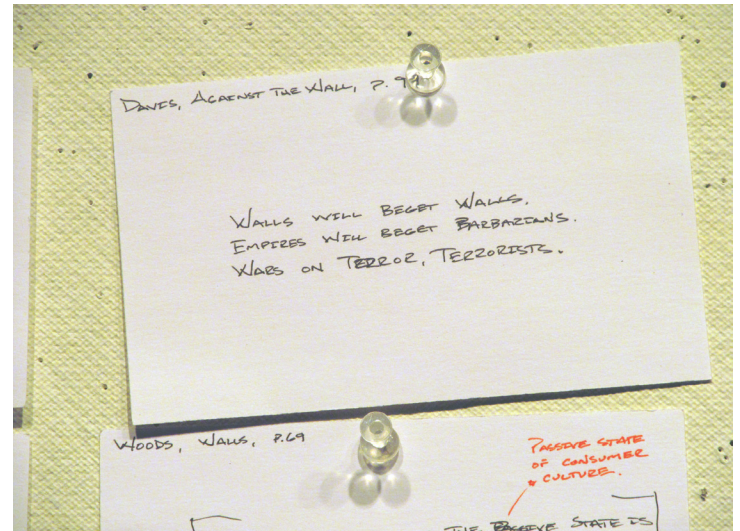 DAVIS, AGAINST THE WALL, P. 99
WALLS WILL BEGET WALLS.
EMPIRES WILL BEGET BARBARIANS.
WARS ON TERROR, TERRORISTS.
WOODS, WALLS, P.69
PASSIVE STATE
OF CONSUMER
CULTURE.
THE PASSIVE STATE IS